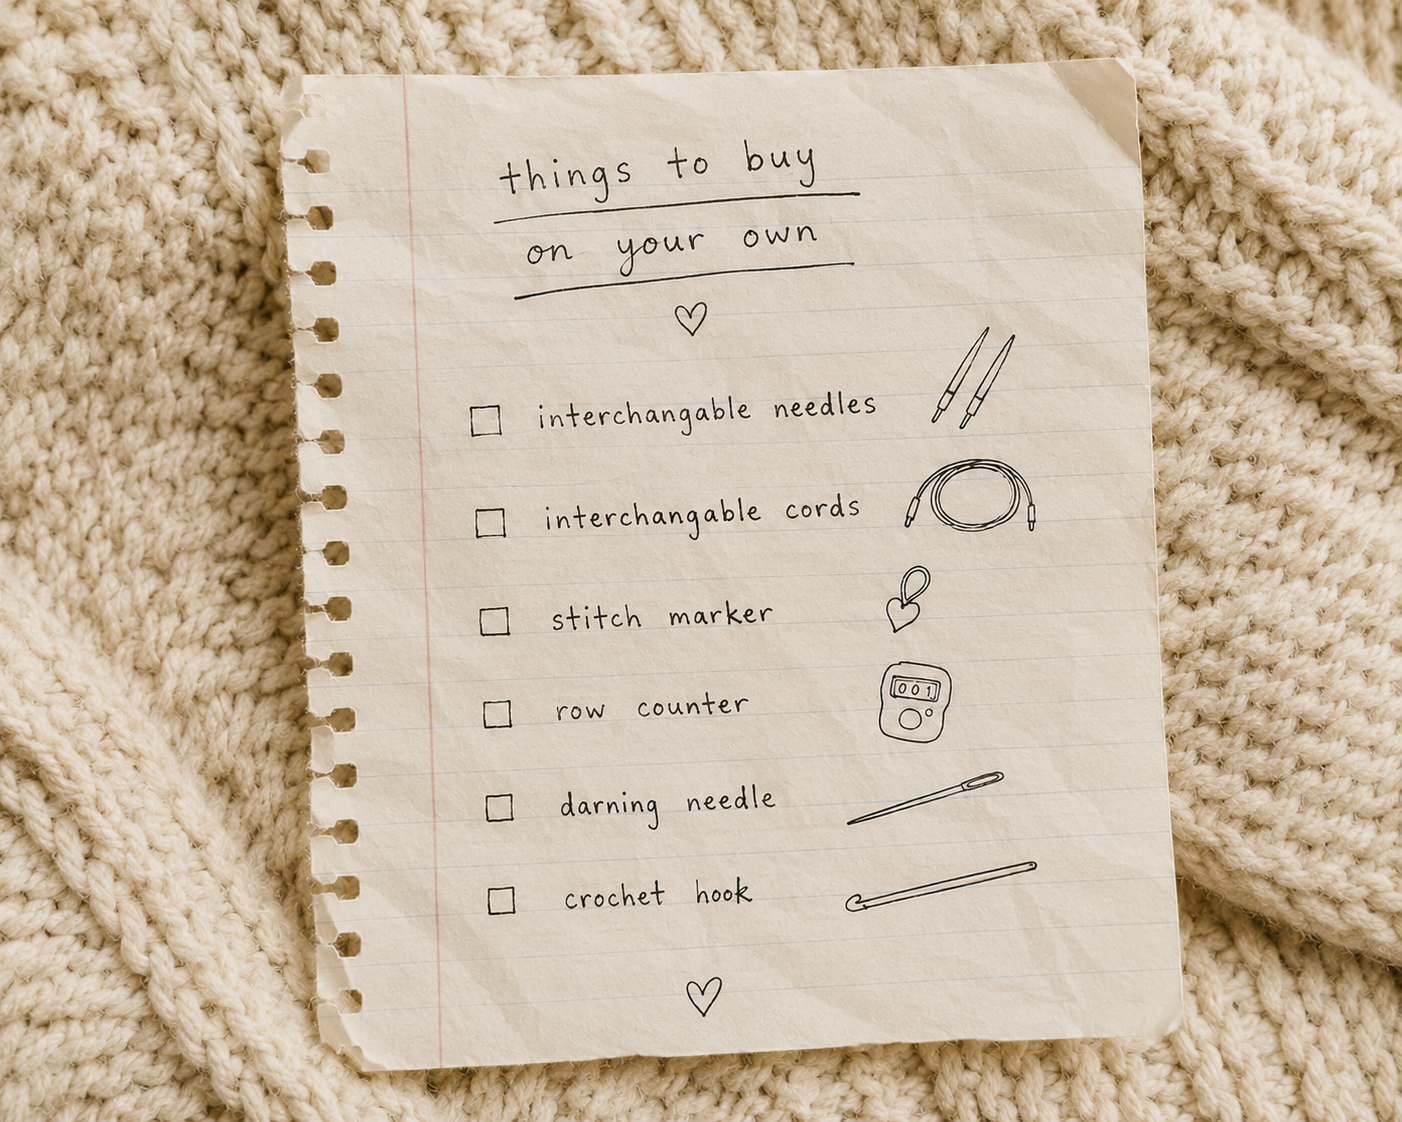 things to buy
on your own
interchangable needles
interchangable cords
stitch marker
row counter
001
darning needle
crochet hook